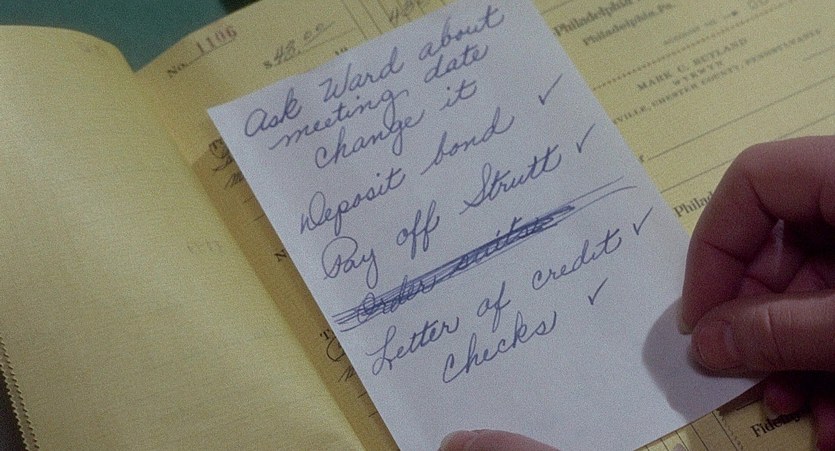 No. 1106
$48.00
Ask Ward about
meeting date
change it
Deposit bond ✓
Pay off Strutt ✓
Order
Letter of credit ✓
checks ✓
Philadelphia
Philadelphia, Pa.
MARK C. RUTLAND
WYKWYN
VILLE, CHESTER COUNTY, PENNSYLVANIA
Philad